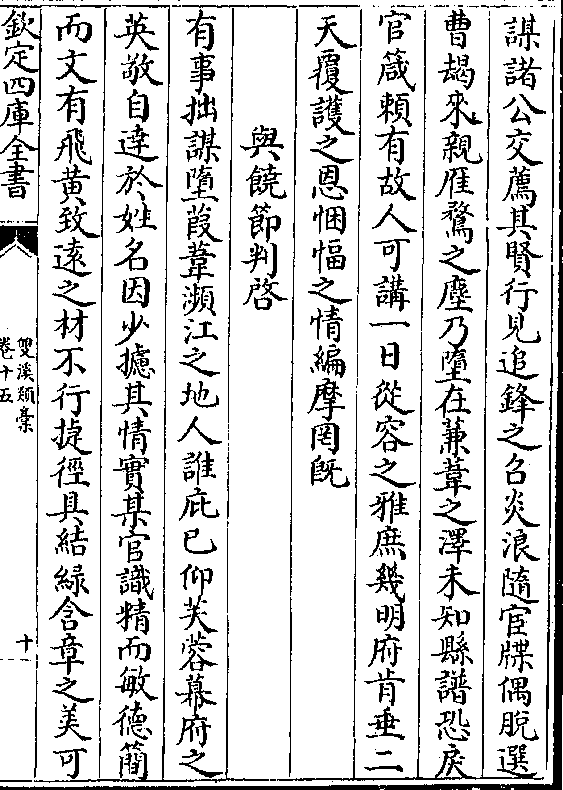 謀諸公交薦其賢行見追鋒之召炎浪隨宦牒偶脫選
曹朅來親雁鶩之塵乃墮在蒹葦之澤未知縣譜恐戾
官箴頼有故人可講一日從容之雅庶幾明府肯垂二
天覆護之恩悃愊之情編摩罔旣
與饒節判啓
有事拙謀墮葭葦瀕江之地人誰庇已仰芙蓉幕府之
英敬自達於姓名因少攄其情實某官識精而敏德簡
而文有飛黄致逺之材不行㨗徑具結緑含章之美可
欽定四庫全書
雙溪類稾
卷十五
十